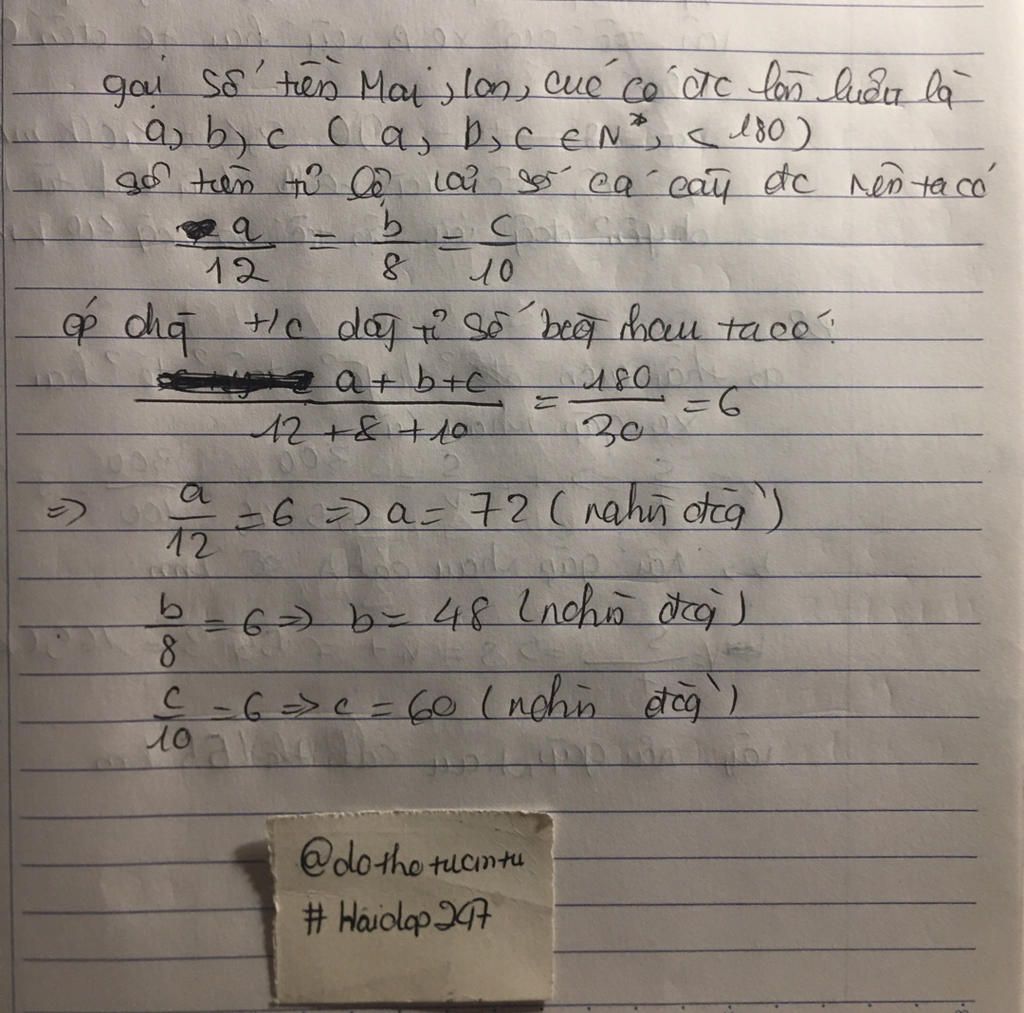 gọi số tiền Mai, lan, cuc có đc lần lượt là
a, b, c ( a, b, c ∈ N*, < 180)
số tiền tỉ lệ số cây đc nên ta có
a/12 = b/8 = c/10
áp dụng t/c dãy tỉ số bằng nhau ta có:
a + b + c / 12 + 8 + 10 = 180/30 = 6
=> a/12 = 6 => a = 72 ( nghìn đồng )
b/8 = 6 => b = 48 ( nghìn đồng )
c/10 = 6 => c = 60 ( nghìn đồng )
@dothotucintu
# Hoidap247